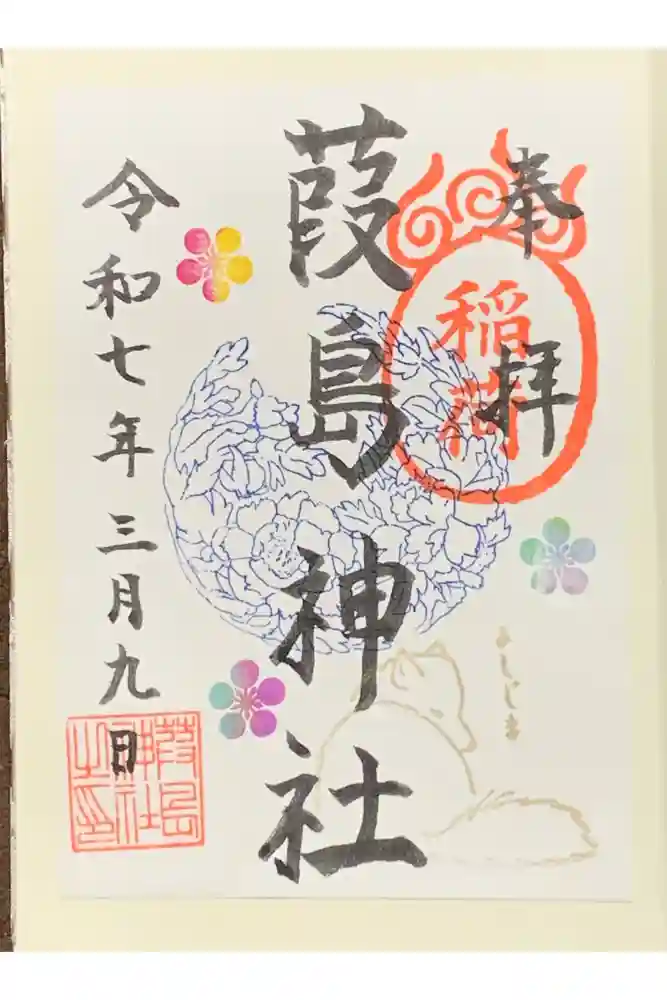 奉拝
稲荷
葭島神社
よしじま
令和七年三月九日
葭島神社之印